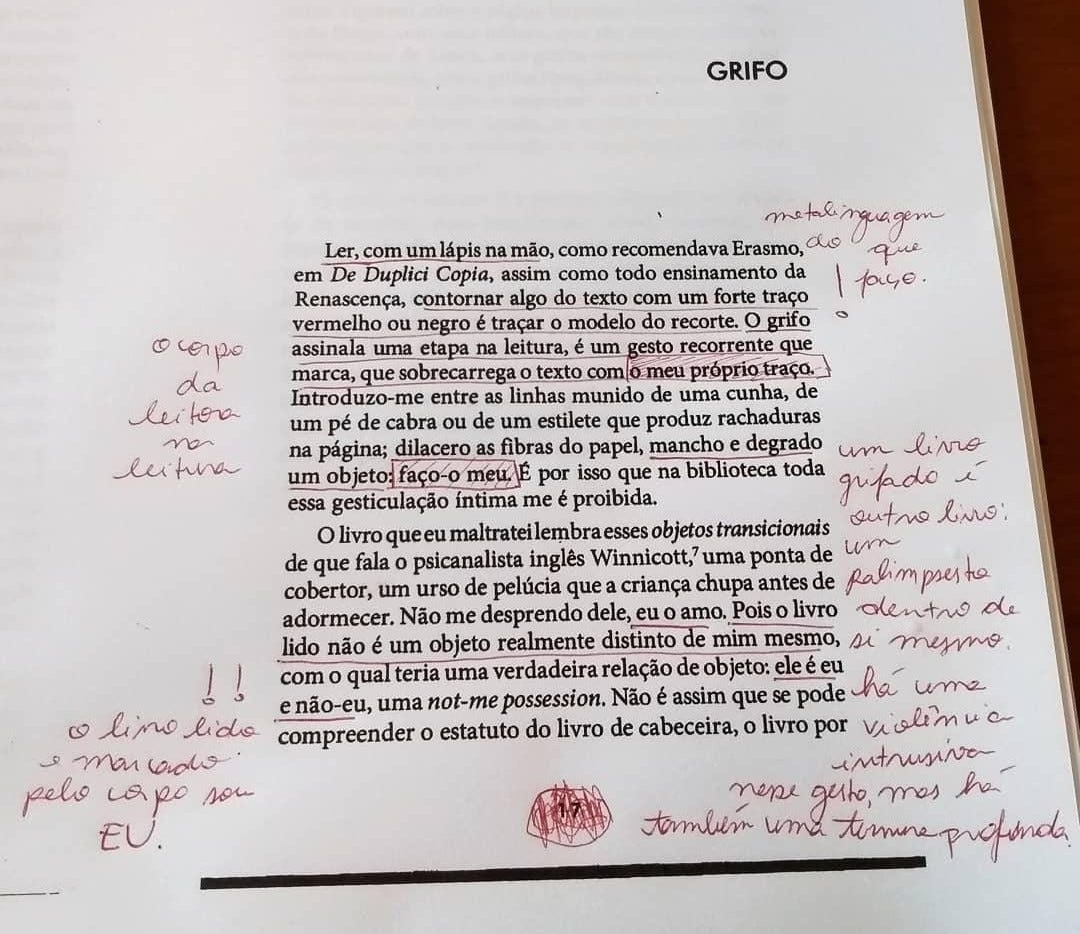 GRIFO
metalinguagem
do que
faço.
Ler, com um lápis na mão, como recomendava Erasmo,
em De Duplici Copia, assim como todo ensinamento da
Renascença, contornar algo do texto com um forte traço
vermelho ou negro é traçar o modelo do recorte. O grifo
assinala uma etapa na leitura, é um gesto recorrente que
marca, que sobrecarrega o texto com o meu próprio traço.
Introduzo-me entre as linhas munido de uma cunha, de
um pé de cabra ou de um estilete que produz rachaduras
na página; dilacero as fibras do papel, mancho e degrado
um objeto: faço-o meu. É por isso que na biblioteca toda
essa gesticulação íntima me é proibida.
O livro que eu maltratei lembra esses objetos transicionais
de que fala o psicanalista inglês Winnicott,⁷ uma ponta de
cobertor, um urso de pelúcia que a criança chupa antes de
adormecer. Não me desprendo dele, eu o amo. Pois o livro
lido não é um objeto realmente distinto de mim mesmo,
com o qual teria uma verdadeira relação de objeto: ele é eu
e não-eu, uma not-me possession. Não é assim que se pode
compreender o estatuto do livro de cabeceira, o livro por
o corpo
da
leitora
na
leitura
!!
o livro lido
e marcado
pelo corpo sou
EU.
um livro
grifado é
outro livro:
um
palimpsesto
dentro de
si mesmo.
há uma
violência
intrusiva
nesse gesto, mas há
também uma ternura profunda.
17